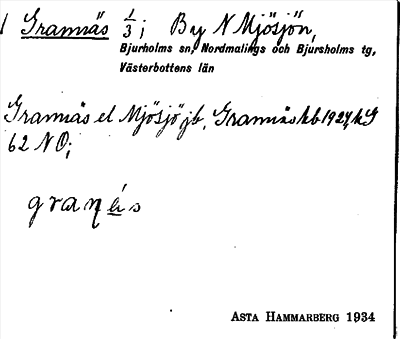 1 Grannäs 1/3; By N Mjösjön,
Bjurholms sn, Nordmalings och Bjursholms tg,
Västerbottens län
Grannäs el Mjösjö jb, Grannäs kb 1924, k G
62 NO;
granä́s
ASTA HAMMARBERG 1934